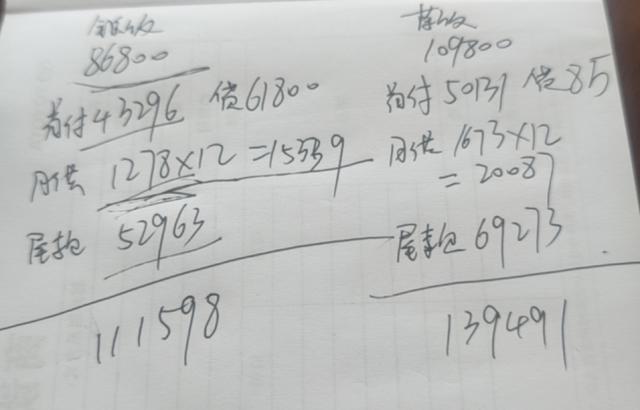 86800
首付43296 贷61800
月供 1278×12=15339
尾款 52963
111598
109800
首付 50131 贷85
月供 1673×12
=20087
尾款 69273
139491